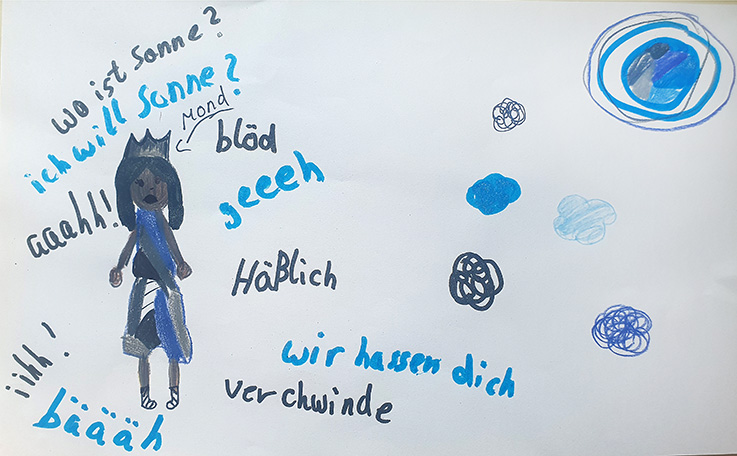 wo ist Sonne?
ich will Sonne?
Mond
blöd
geeeh
aaahh!
Häßlich
wir hassen dich
verchwinde
iihh!
bäääh